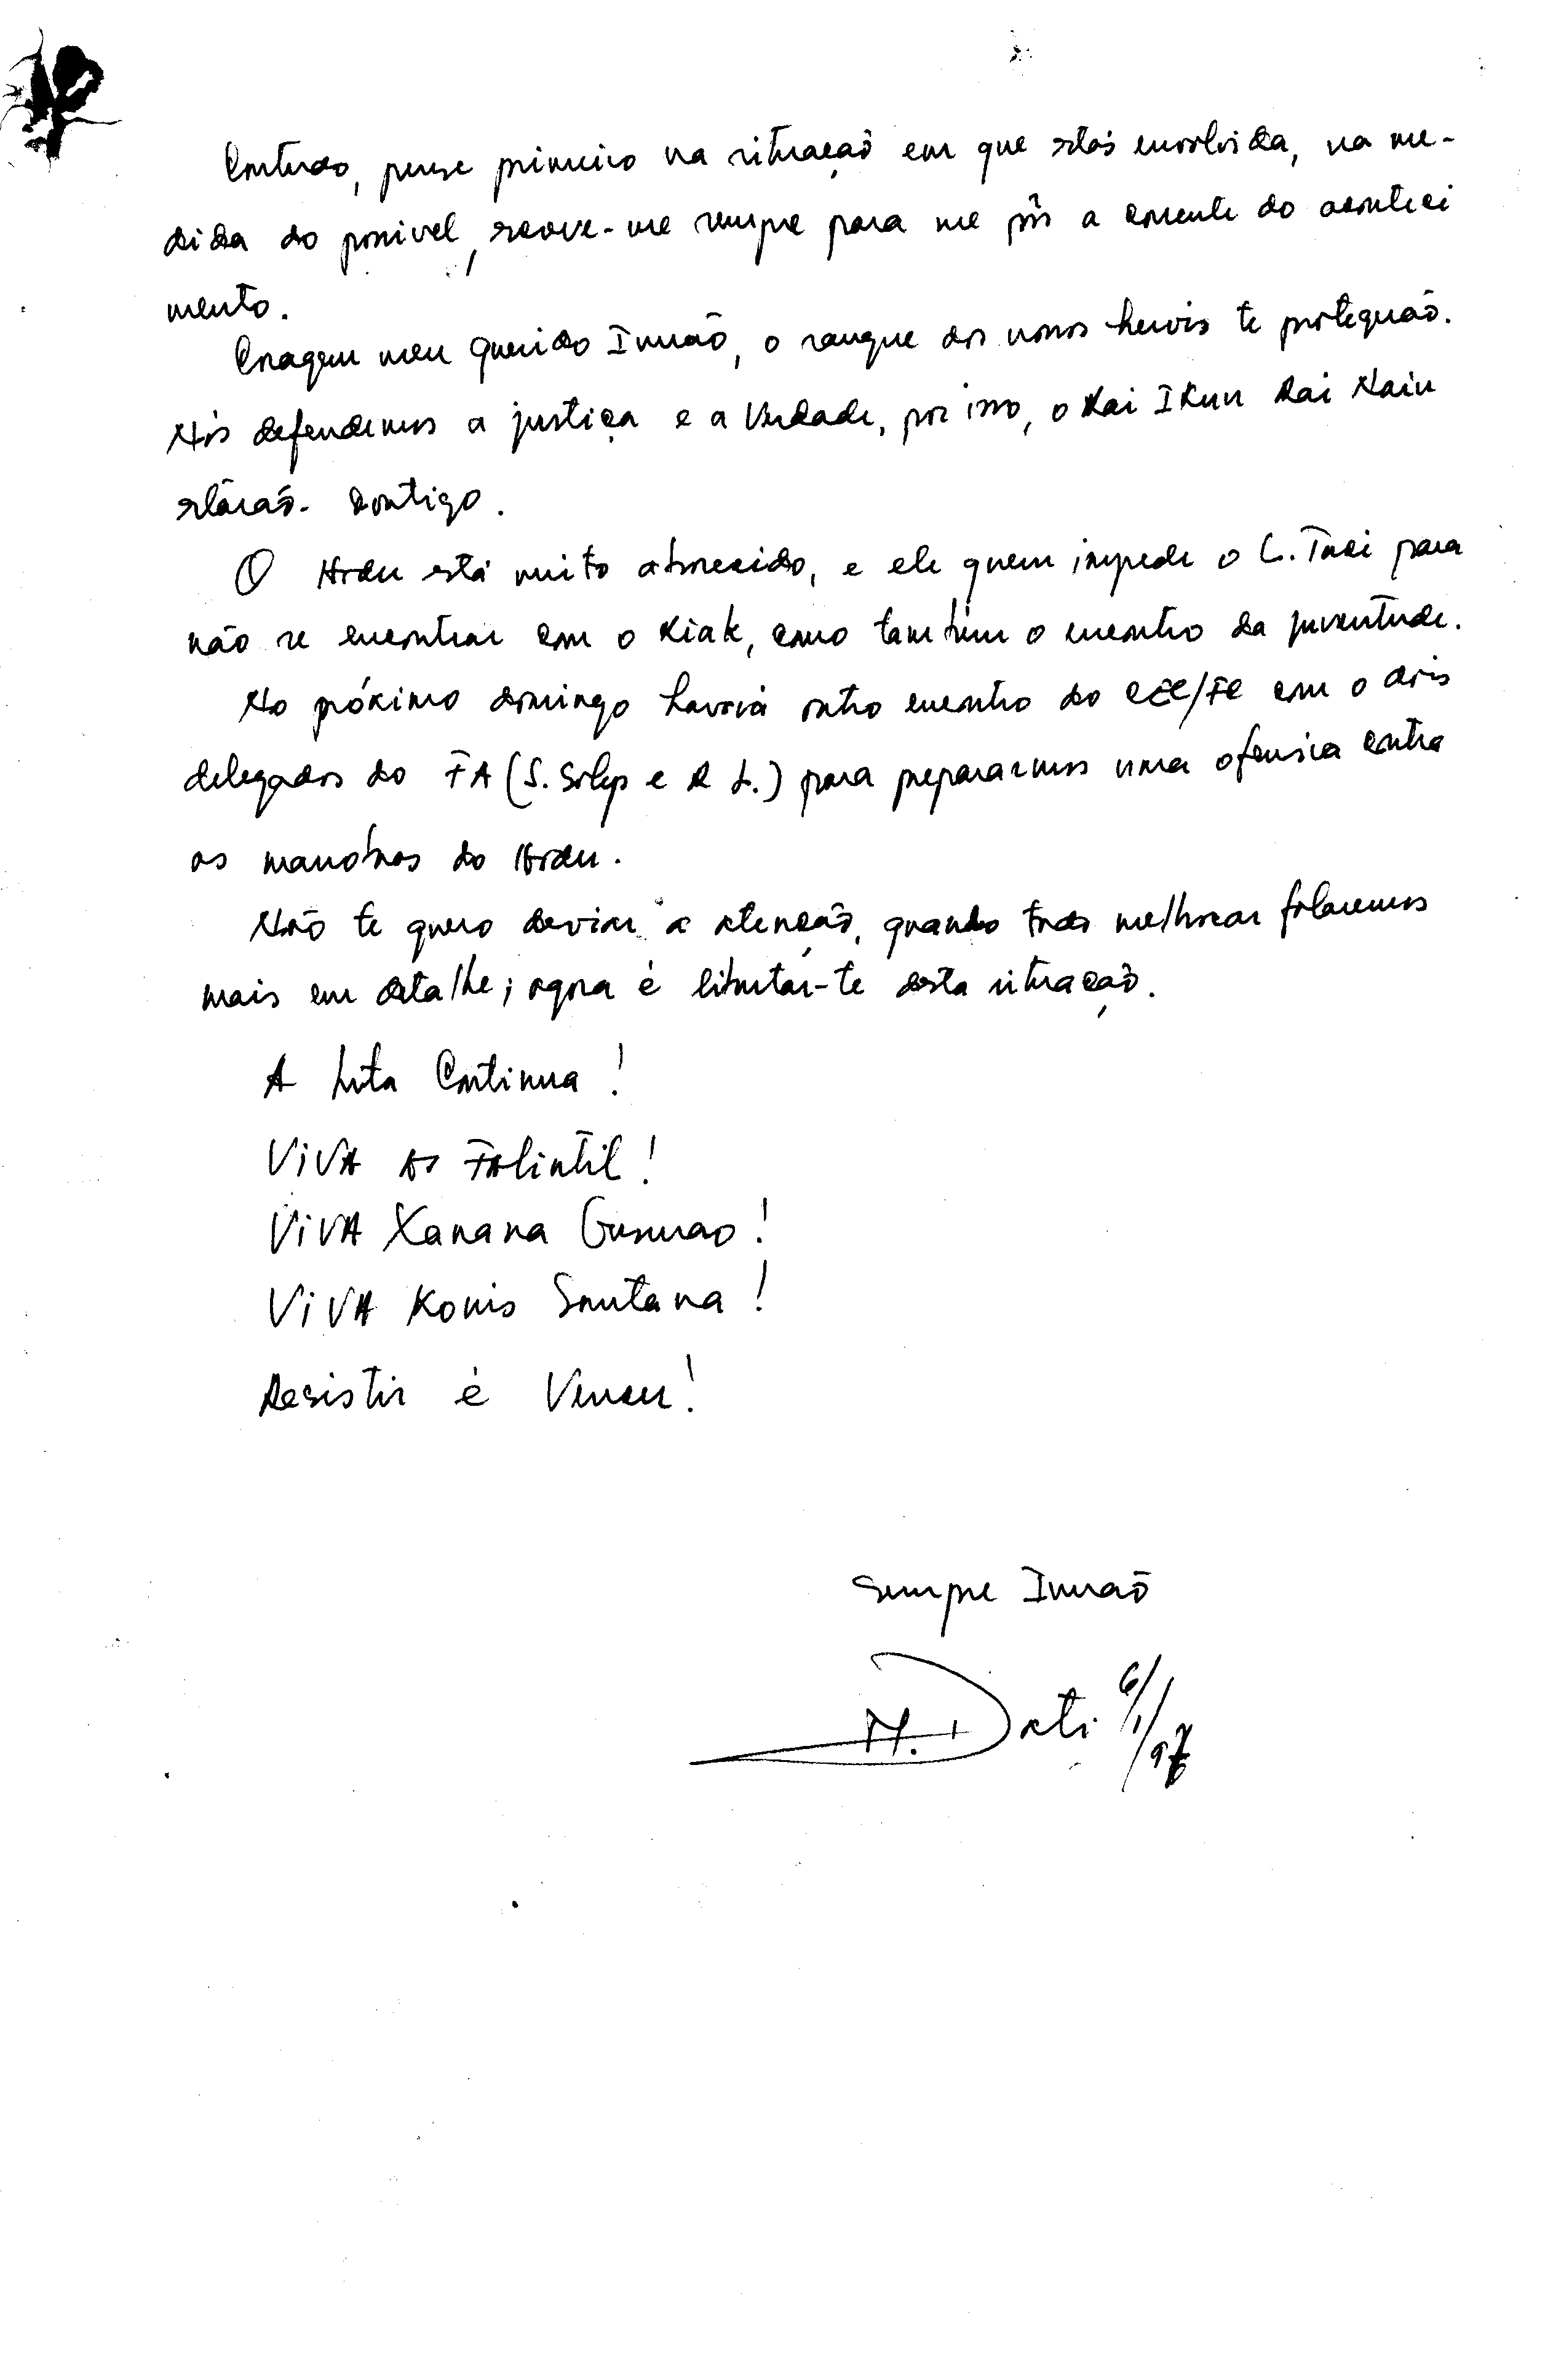 Contudo, pense primeiro na situação em que estás envolvida, na me-
dida do possivel, escreve-me sempre para me pôs a corrente do aconteci
mento.
Coragem meu Querido Irmão, o sangue dos nossos herois te protegerão.
Nós defendemos a justiça e a Verdade, por isso, o Rai Ikun Rai Nain
estárão- contigo.
O Hodu está muito aborrecido, e ele quem impede o L. Tasi para
não se encontrar com o Kiak, como tambêm o encontro da juventude.
No próximo domingo haverá outro encontro do CEE/FC com o dois
delegados do FA (S. e R L.) para prepararmos uma ofensiva contra
as manobras do Hodu.
Não te quero deviar a atenção, quando tudo melhorar falaremos
mais em detalhe; agora é libertar-te desta situação.
A Luta Continua!
ViVA As FAlintil!
ViVA Xanana Gusmao!
ViVA Konis Santana!
Resistir é Vencer!
Sempre Irmão
M. Dati 6/1/97